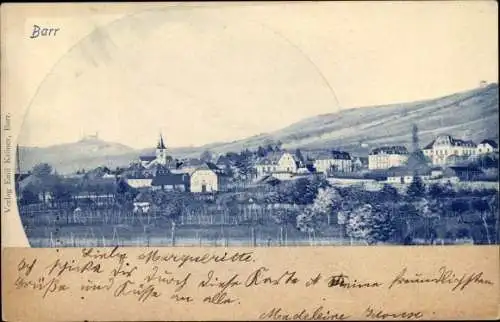 Barr
Verlag Emil Kellner, Barr.
Liebe Marguerithe
Ich schicke dir durch diese Karte meine freundlichsten
Grüße und Küsse an alle.
Madeleine